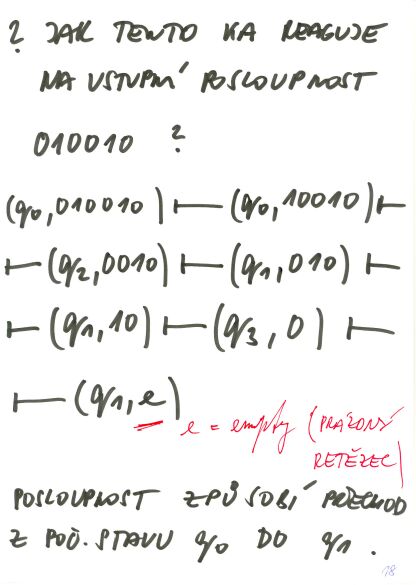 ? JAK TENTO KA REAGUJE
NA VSTUPNÍ POSLOUPNOST
010010 ?
(q0, 010010) ⊢ (q0, 10010) ⊢
⊢ (q2, 0010) ⊢ (q1, 010) ⊢
⊢ (q1, 10) ⊢ (q3, 0) ⊢
⊢ (q1, e)
e = empty (PRÁZDNÝ
ŘETĚZEC)
POSLOUPNOST ZPŮSOBÍ PŘECHOD
Z POČ. STAVU q0 DO q1.
18